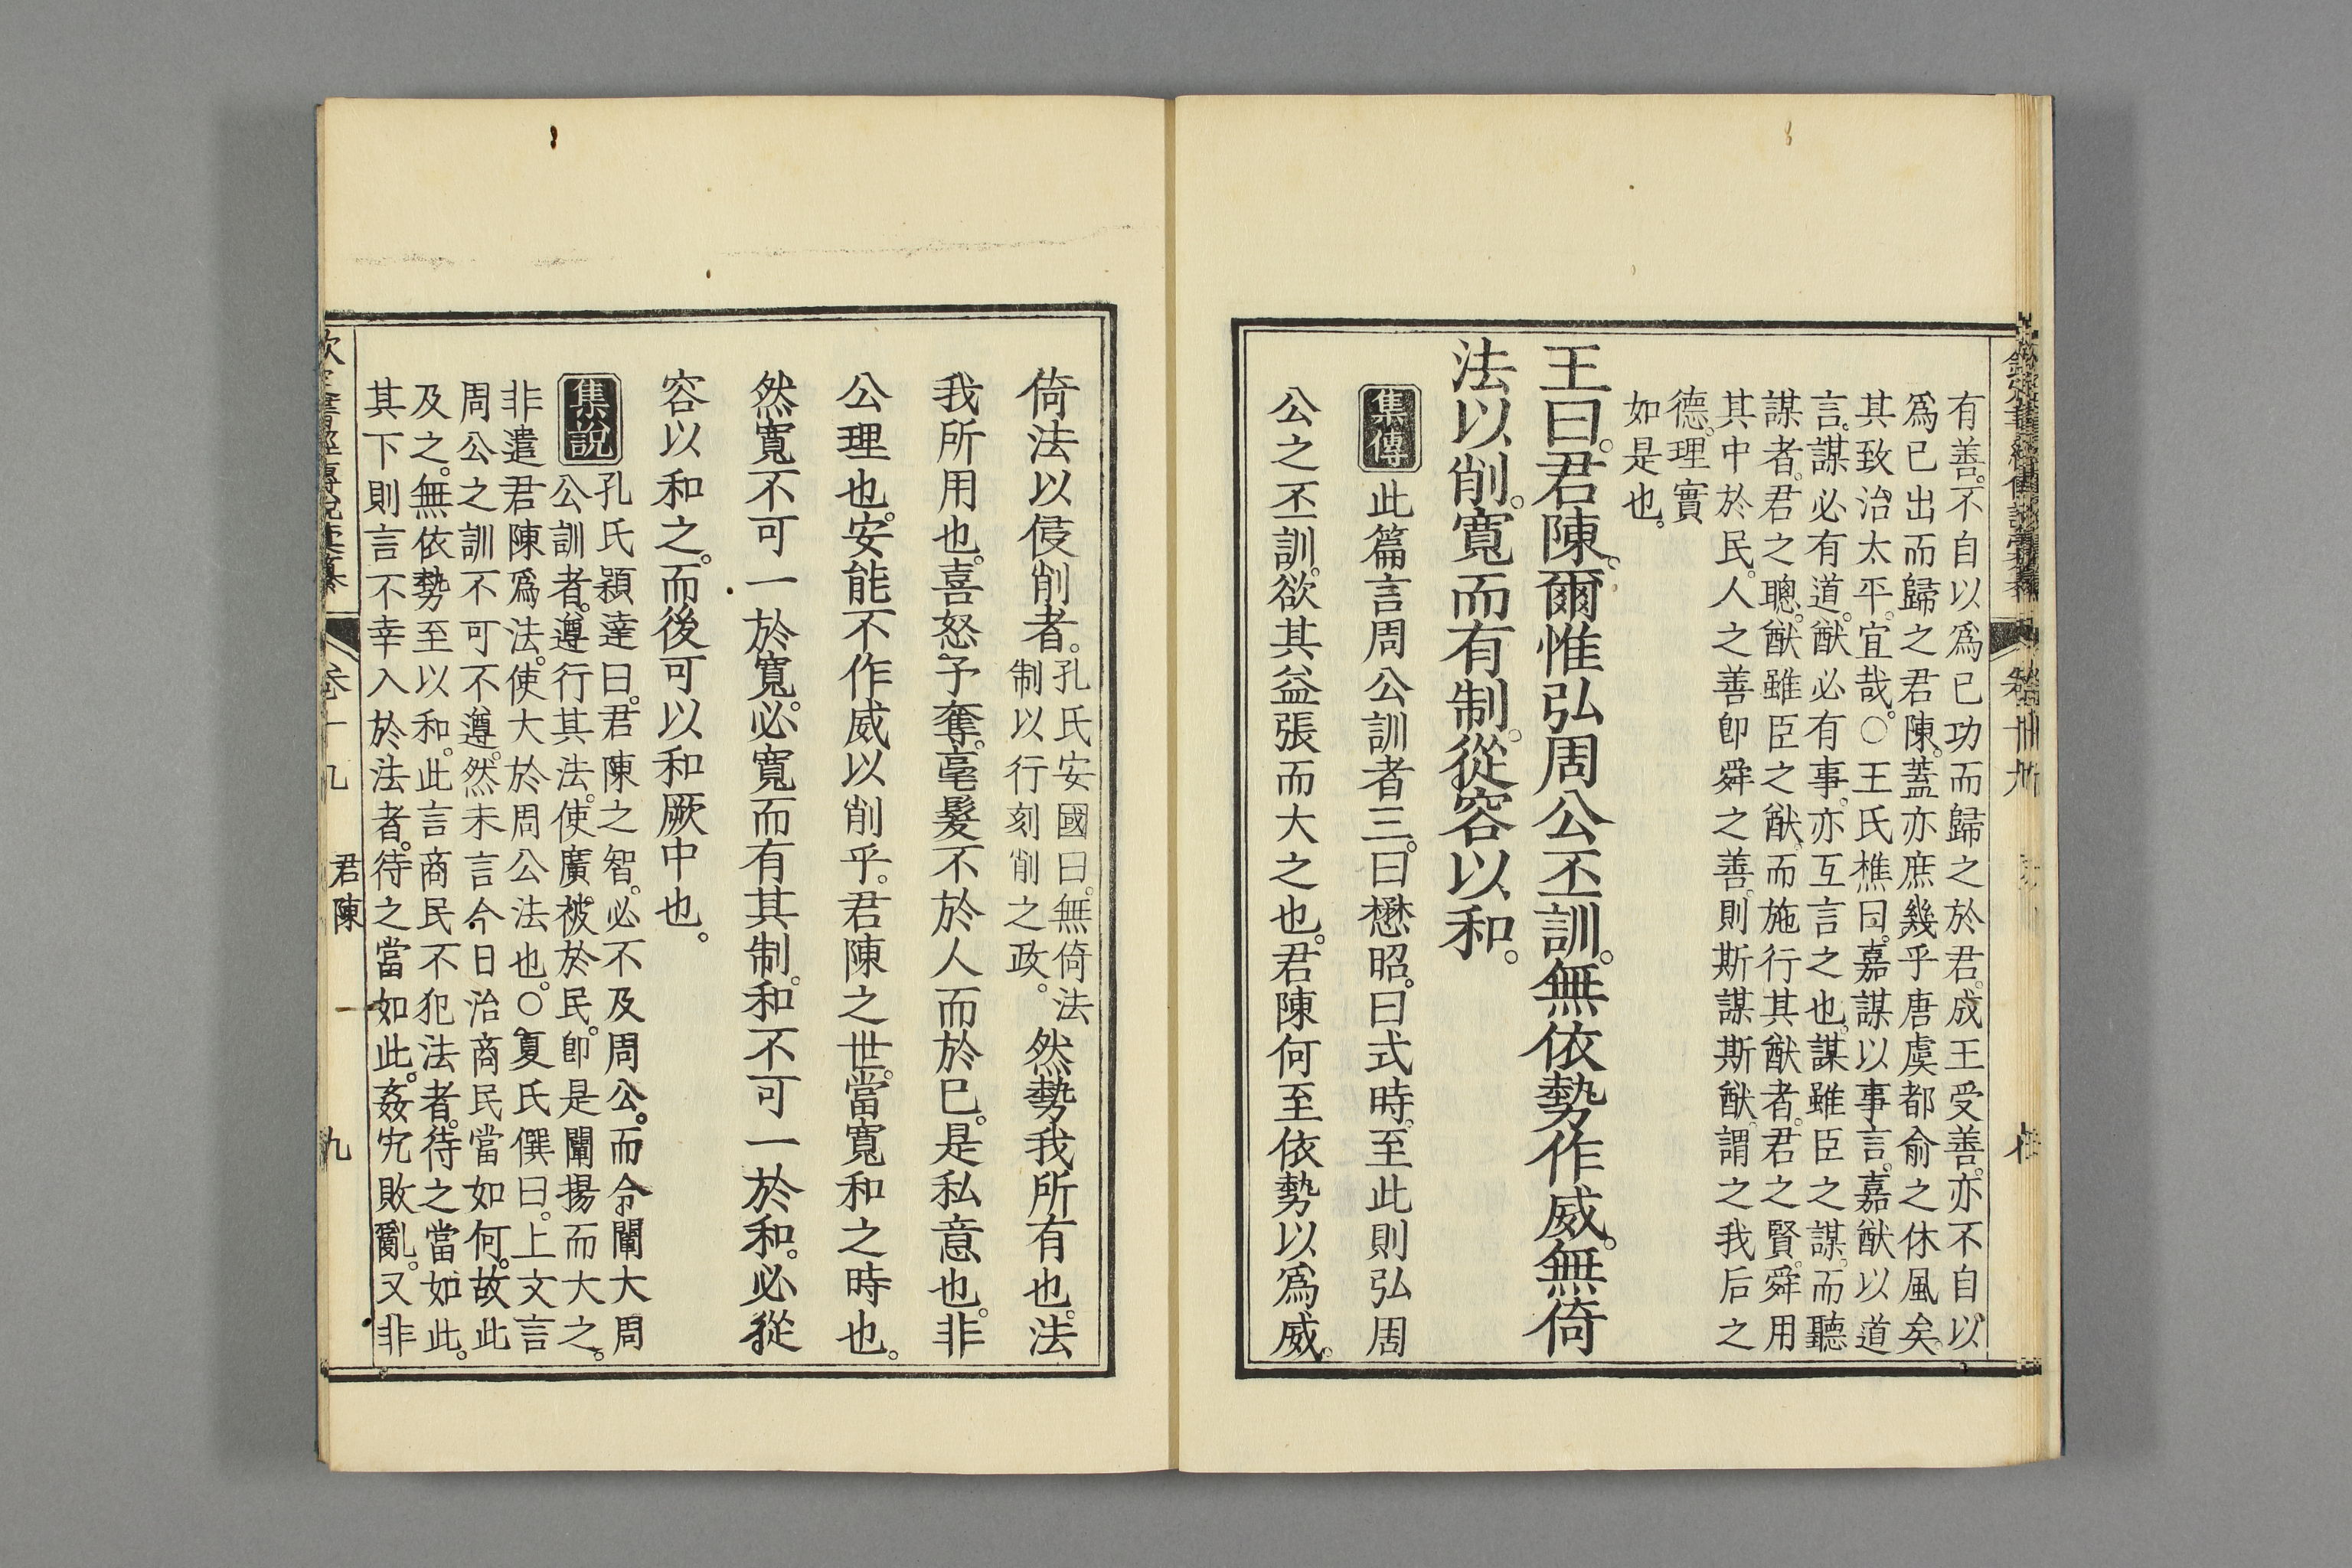 有善。不自以爲已功而歸之於君。成王受善。亦不自以
爲已出而歸之君陳。蓋亦庶幾乎唐虞都俞之休風矣。
其致治太平。宜哉。○王氏樵曰。嘉謀以事言。嘉猷以道
言。謀必有道。猷必有事。亦互言之也。謀雖臣之謀。而聽
謀者。君之聰。猷雖臣之猷。而施行其猷者。君之賢。舜用
其中於民。人之善卽舜之善。則斯謀斯猷。謂之我后之
德。理實
如是也。
王曰。君陳。爾惟弘周公丕訓。無依勢作威。無倚
法以削。寬而有制。從容以和。
集傳
此篇言周公訓者三。曰懋昭。曰式時。至此則弘周
公之丕訓。欲其益張而大之也。君陳何至依勢以爲威。
倚法以侵削者。
孔氏安國曰。無倚法
制以行刻削之政。
然勢我所有也。法
我所用也。喜怒予奪。毫髮不於人而於已。是私意也。非
公理也。安能不作威以削乎。君陳之世。當寬和之時也。
然寬不可一於寬。必寬而有其制。和不可一於和。必從
容以和之。而後可以和厥中也。
集說
孔氏穎達曰。君陳之智。必不及周公。而令闡大周
公訓者。遵行其法。使廣被於民。卽是闡揚而大之。
非遣君陳爲法。使大於周公法也。○夏氏僎曰。上文言
周公之訓不可不遵。然未言今日治商民當如何。故此
及之。無依勢至以和。此言商民不犯法者。待之當如此。
其下則言不幸入於法者。待之當如此。姦宄敗亂。又非
卷十九
君陳
九